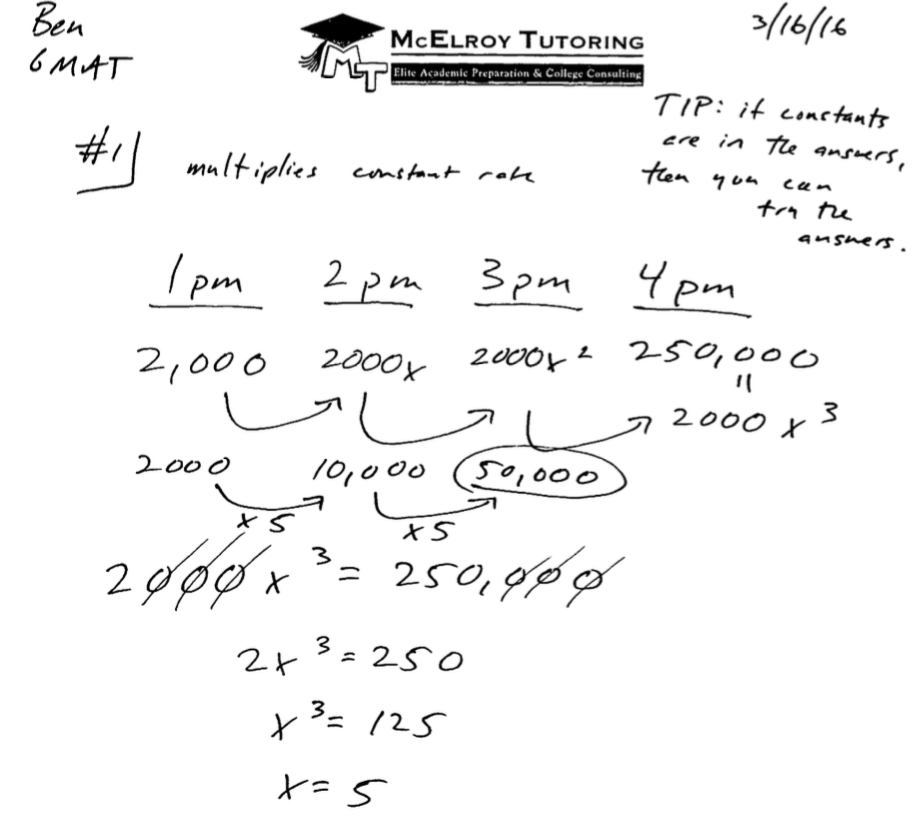 Ben
GMAT
McElroy Tutoring
Elite Academic Preparation & College Consulting
MT
3/16/16
TIP: if constants
are in the answers,
then you can
try the
answers.
#1
multiplies constant rate
1pm 2pm 3pm 4pm
2,000 2000x 2000x² 250,000
=
2000x³
2000 10,000 50,000
x5 x5
2000x³ = 250,000
2x³ = 250
x³ = 125
x = 5